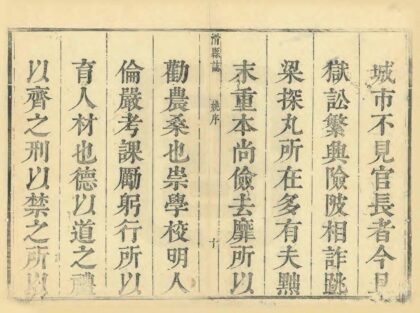 城市不見官長者今見
獄訟繁興險陂相詐跳
梁探丸所在多有夫黜
末重本尚儉去靡所以
滑縣誌 姚序 十
勸農桑也崇學校明人
倫嚴考課勵躬行所以
育人材也德以道之禮
以齊之刑以禁之所以